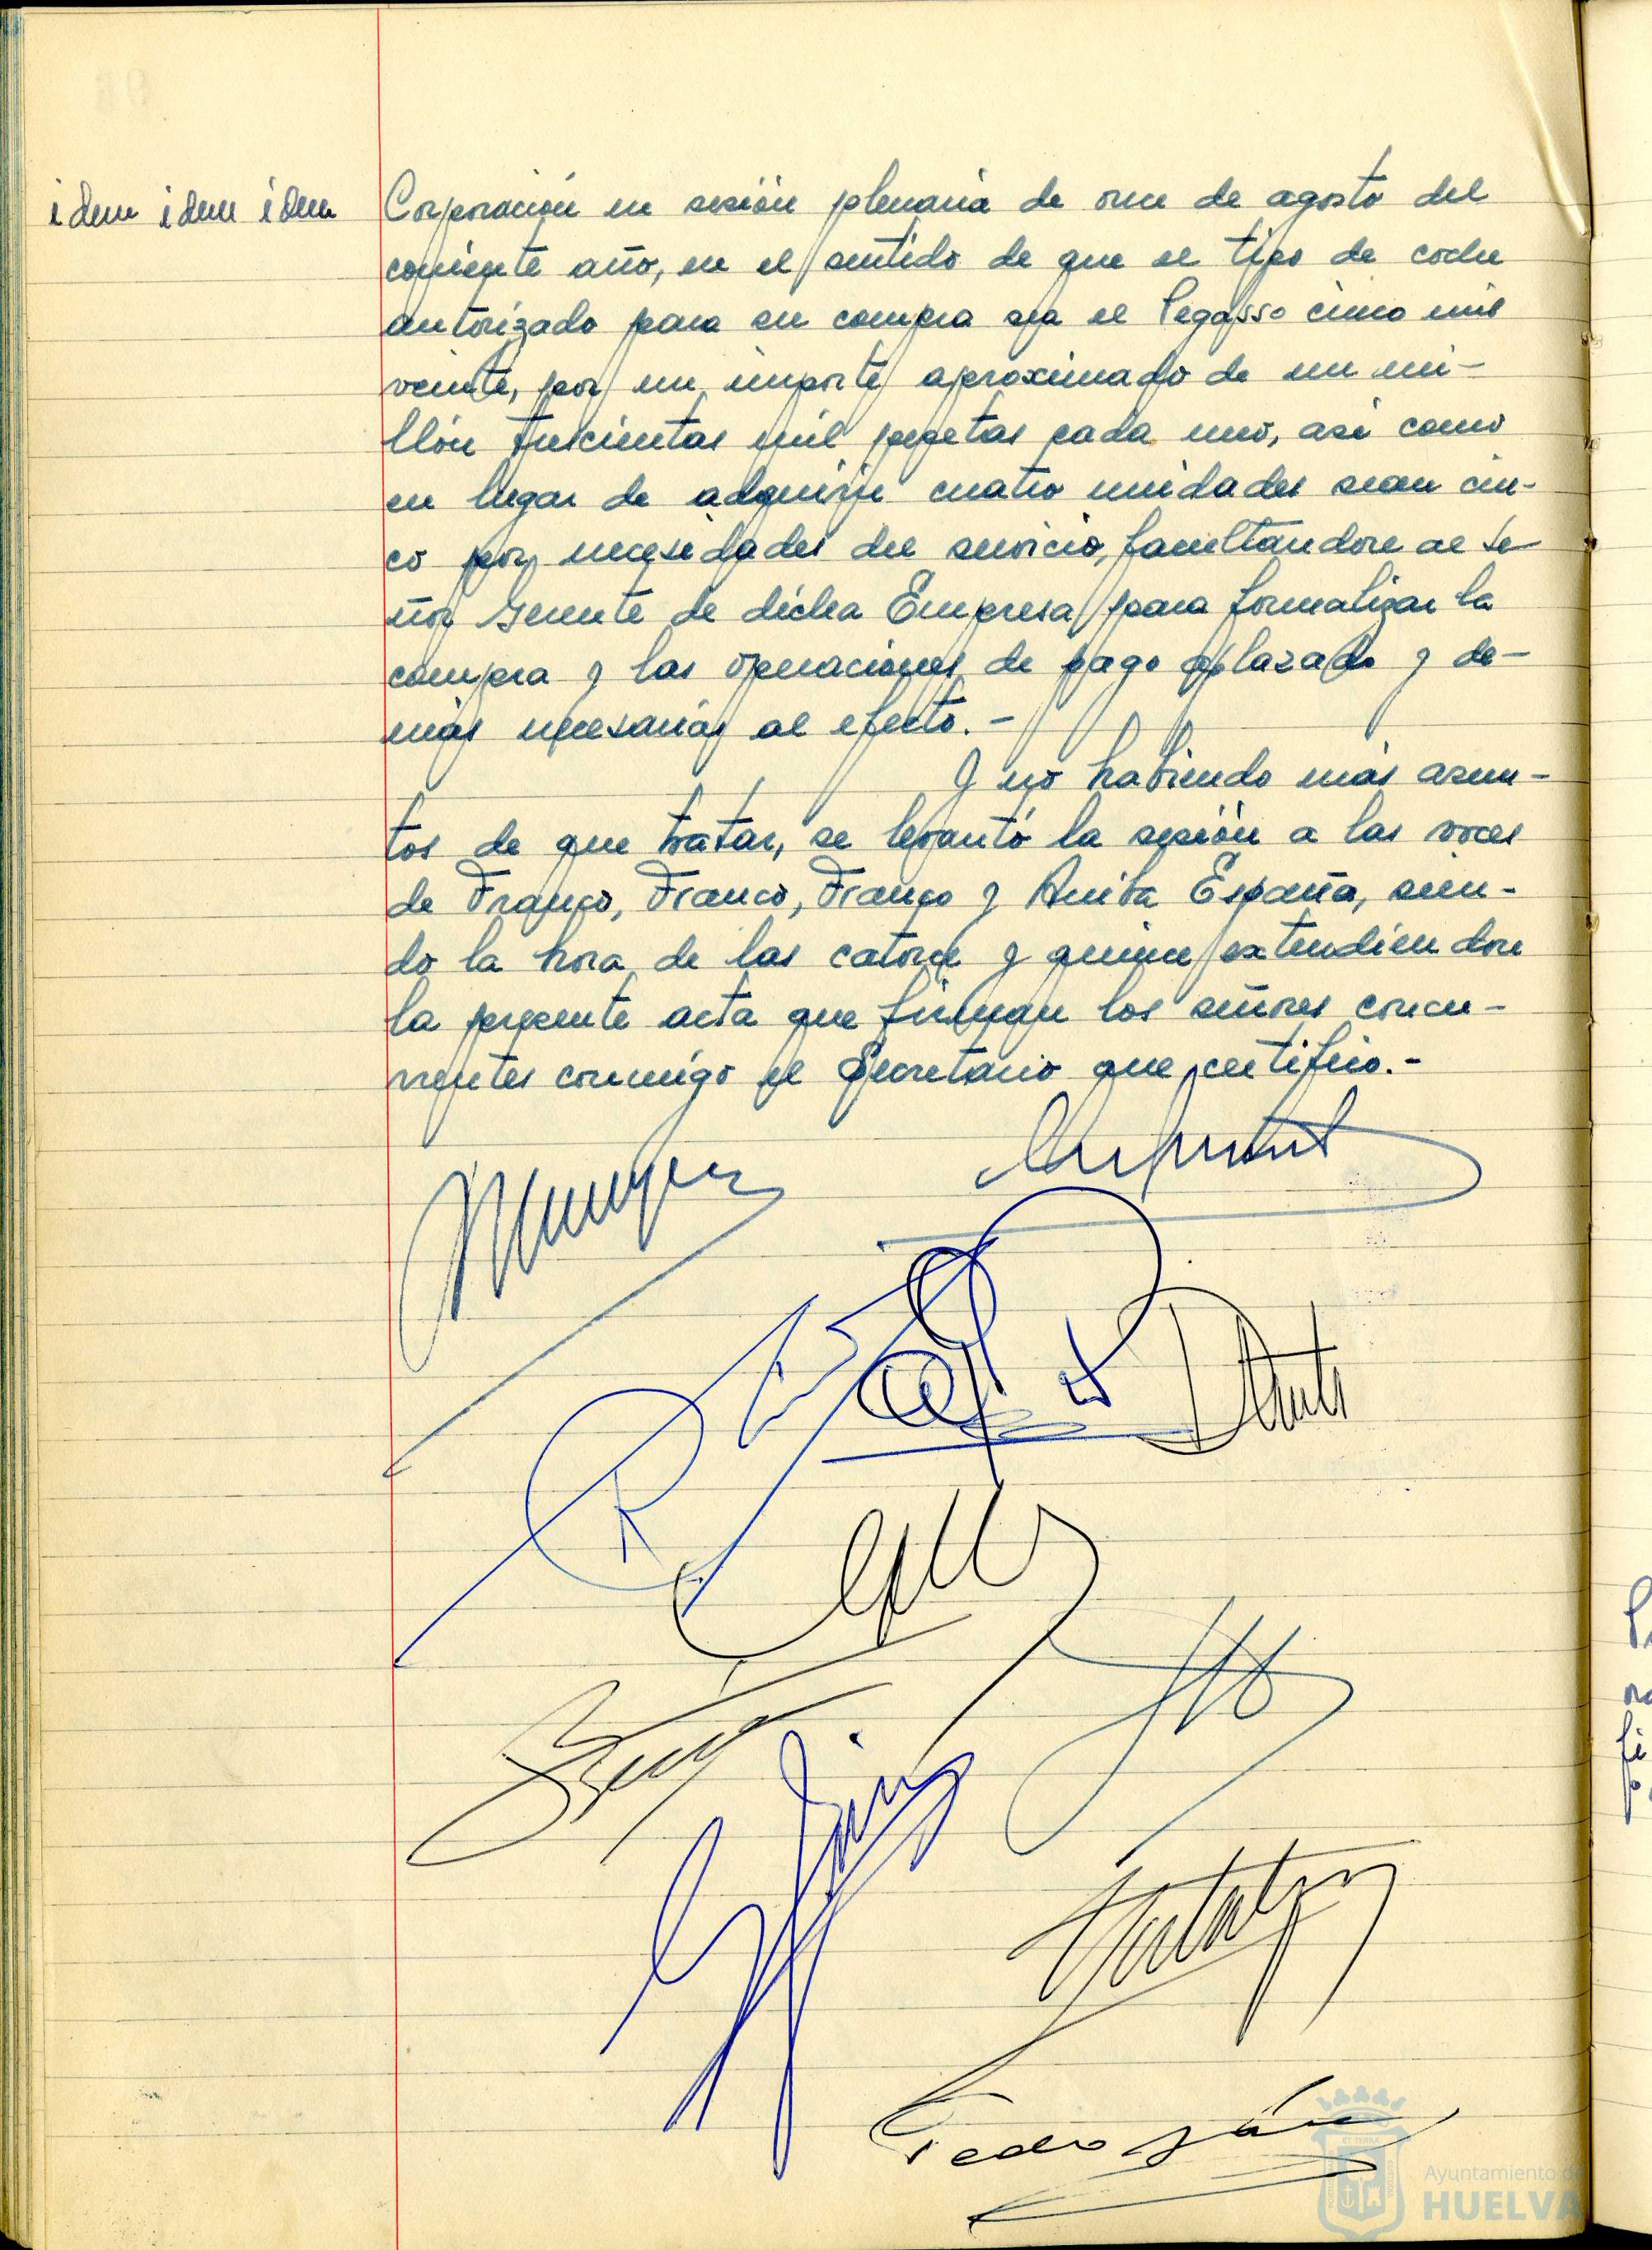 idem idem idem
Corporación en sesión plenaria de once de agosto del
corriente año, en el sentido de que el tipo de coche
autorizado para su compra sea el Pegasso cinco mil
veinte, por un importe aproximado de un mi-
llón trescientas mil pesetas cada uno, asi como
en lugar de adquirir cuatro unidades sean cin-
co por necesidades del servicio, facultandose al Se-
ñor Gerente de dicha Empresa para formalizar la
compra y las operaciones de pago aplazado y de-
más necesarias al efecto.-
Y no habiendo más asun-
tos de que tratar, se levantó la sesión a las voces
de Franco, Franco, Franco y Arriba España, sien-
do la hora de las catorce y quince, extendiendose
la presente acta que firman los señores concu-
rrentes conmigo el Secretario que certifico.-
Pedro
Ayuntamiento de
HUELVA